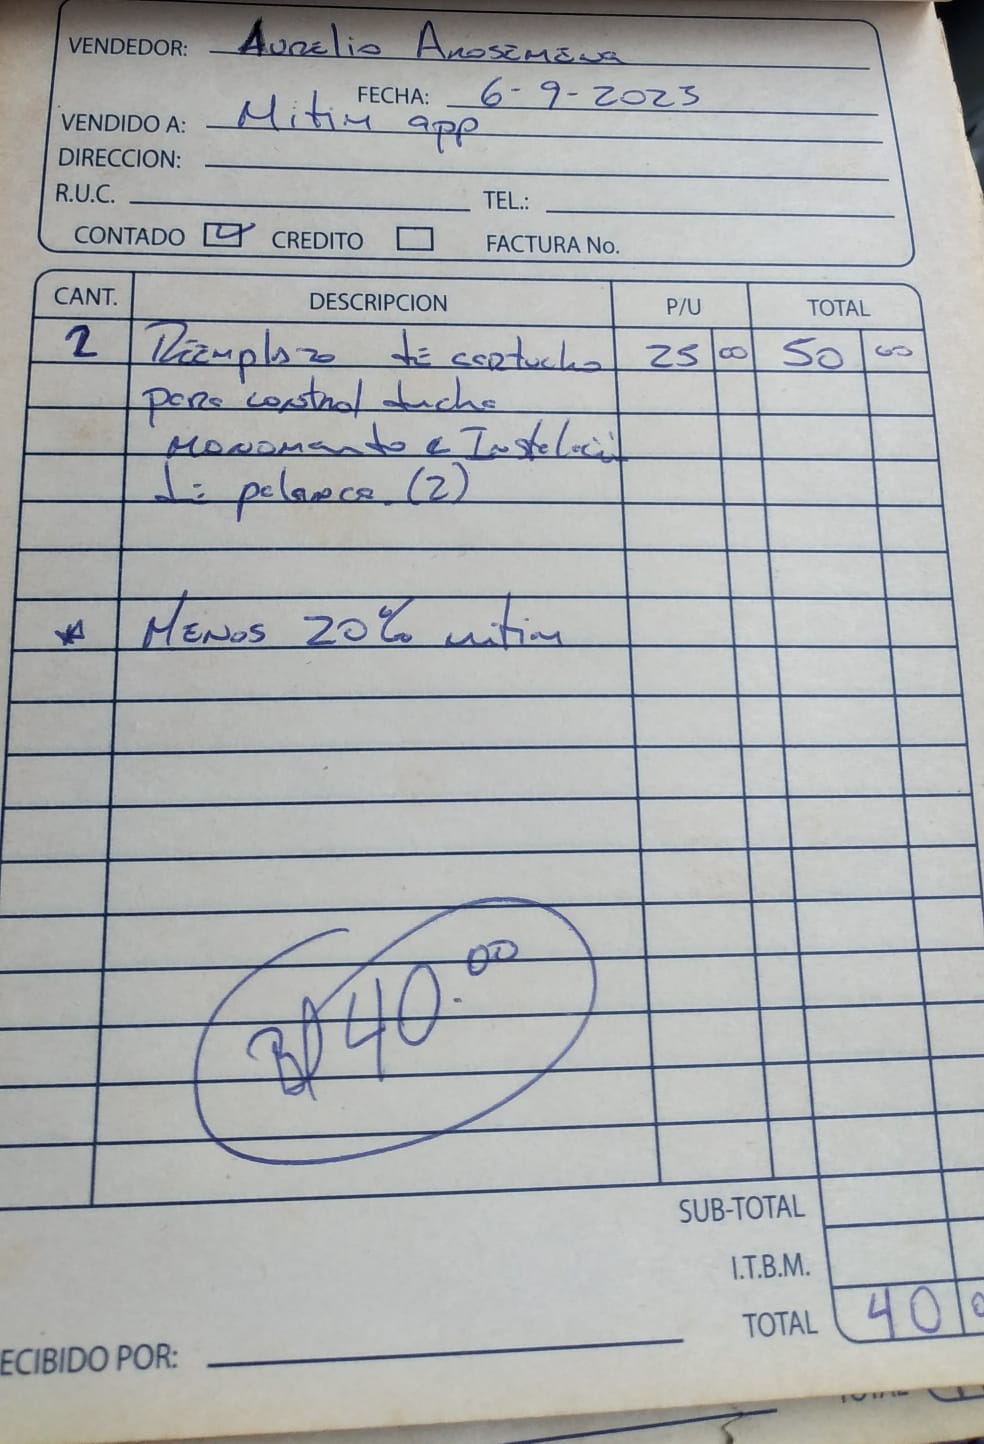 VENDEDOR: Aurelio Arosemena
FECHA: 6-9-2023
VENDIDO A: Mitim app
DIRECCION:
R.U.C. TEL.:
CONTADO CREDITO FACTURA No.
CANT. DESCRIPCION P/U TOTAL
2 Reemplazo de cartucho 25 00 50 00
para control ducha
monomando e Instalación
de palanca. (2)
* MENOS 20% mitim
B/ 40.00
SUB-TOTAL
I.T.B.M.
TOTAL 40 0
ECIBIDO POR: